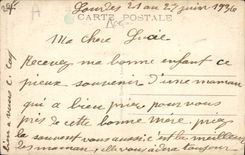 Lourdes 21 au 27 juin 1936
CARTE POSTALE
Ma chère Lucie
Recevez ma bonne enfant ce
pieux souvenir d'une maman
qui a bien prié pour vous
près de cette bonne mère, priez
la souvent vous aussi c'est la meilleure
des maman, elle vous aidera toujours
bien à vous